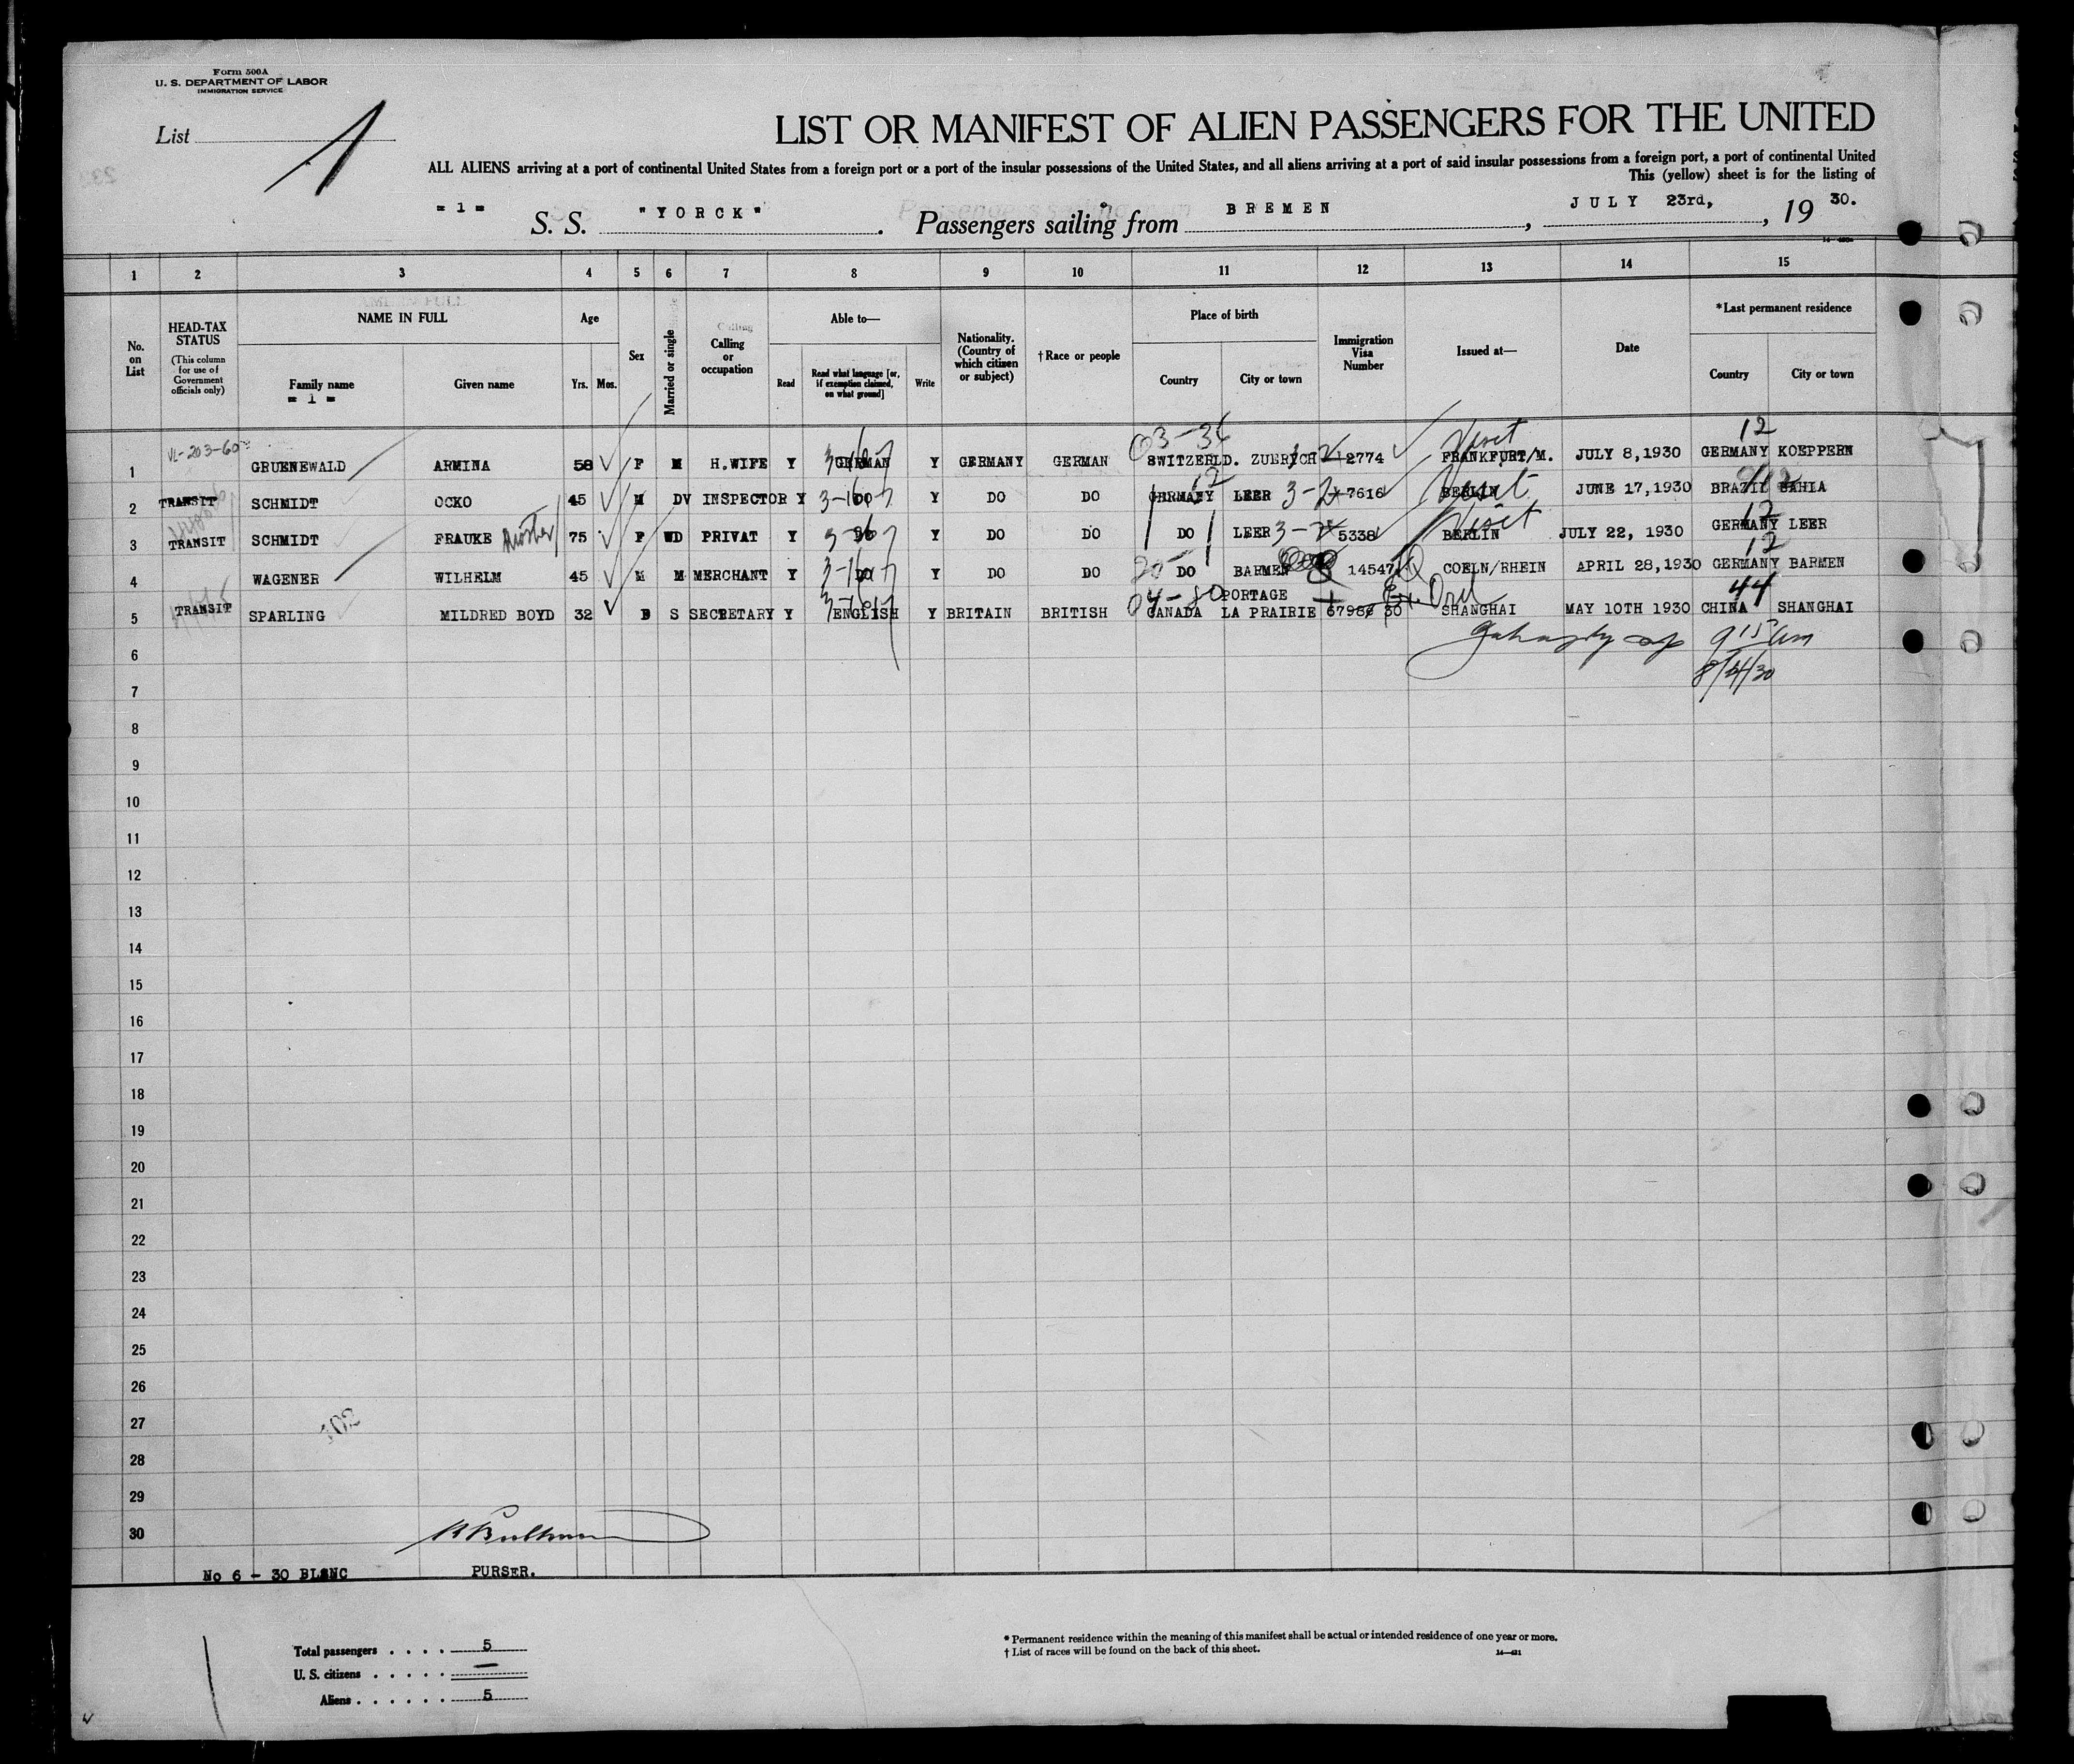 Form 500A
U. S. DEPARTMENT OF LABOR
IMMIGRATION SERVICE
List 1
LIST OR MANIFEST OF ALIEN PASSENGERS FOR THE UNITED
ALL ALIENS arriving at a port of continental United States from a foreign port or a port of the insular possessions of the United States, and all aliens arriving at a port of said insular possessions from a foreign port, a port of continental United
This (yellow) sheet is for the listing of
= 1 = S. S. "YORCK". Passengers sailing from BREMEN, JULY 23rd, , 19 30.
1 2 3 4 5 6 7 8 9 10 11 12 13 14 15
No. on List
HEAD-TAX STATUS
(This column for use of Government officials only)
NAME IN FULL
Family name
= 1 =
Given name
Age
Yrs. Mos.
Sex
Married or single
Calling or occupation
Able to—
Read
Read what language [or, if exemption claimed, on what ground]
Write
Nationality. (Country of which citizen or subject)
† Race or people
Place of birth
Country
City or town
Immigration Visa Number
Issued at—
Date
*Last permanent residence
Country
City or town
03-34 Visit 12
1 GRUENEWALD ARMINA 58 F M H.WIFE Y GERMAN Y GERMANY GERMAN SWITZERLD. ZUERYCH 2774 FRANKFURT/M. JULY 8,1930 GERMANY KOEPPERN
12 Visit
2 TRANSIT SCHMIDT OCKO 45 M DV INSPECTOR Y DO Y DO DO GERMANY LEER 7616 BERLIN JUNE 17,1930 BRAZIL BAHIA
Visit 12
3 TRANSIT SCHMIDT FRAUKE 75 F WD PRIVAT Y DO Y DO DO DO LEER 5338 BERLIN JULY 22, 1930 GERMANY LEER
12
4 WAGENER WILHELM 45 M M MERCHANT Y DO Y DO DO DO BARMEN 14547 COELN/RHEIN APRIL 28,1930 GERMANY BARMEN
04-80 PORTAGE 44
5 TRANSIT SPARLING MILDRED BOYD 32 S SECRETARY Y ENGLISH Y BRITAIN BRITISH CANADA LA PRAIRIE SHANGHAI MAY 10TH 1930 CHINA SHANGHAI
6 9 15 am
7 8/4/30
8
9
10
11
12
13
14
15
16
17
18
19
20
21
22
23
24
25
26
27
28
29
30
No 6 - 30 BLANC PURSER.
Total passengers . . . . 5
U. S. citizens . . . . . —
Aliens . . . . . . 5
* Permanent residence within the meaning of this manifest shall be actual or intended residence of one year or more.
† List of races will be found on the back of this sheet.